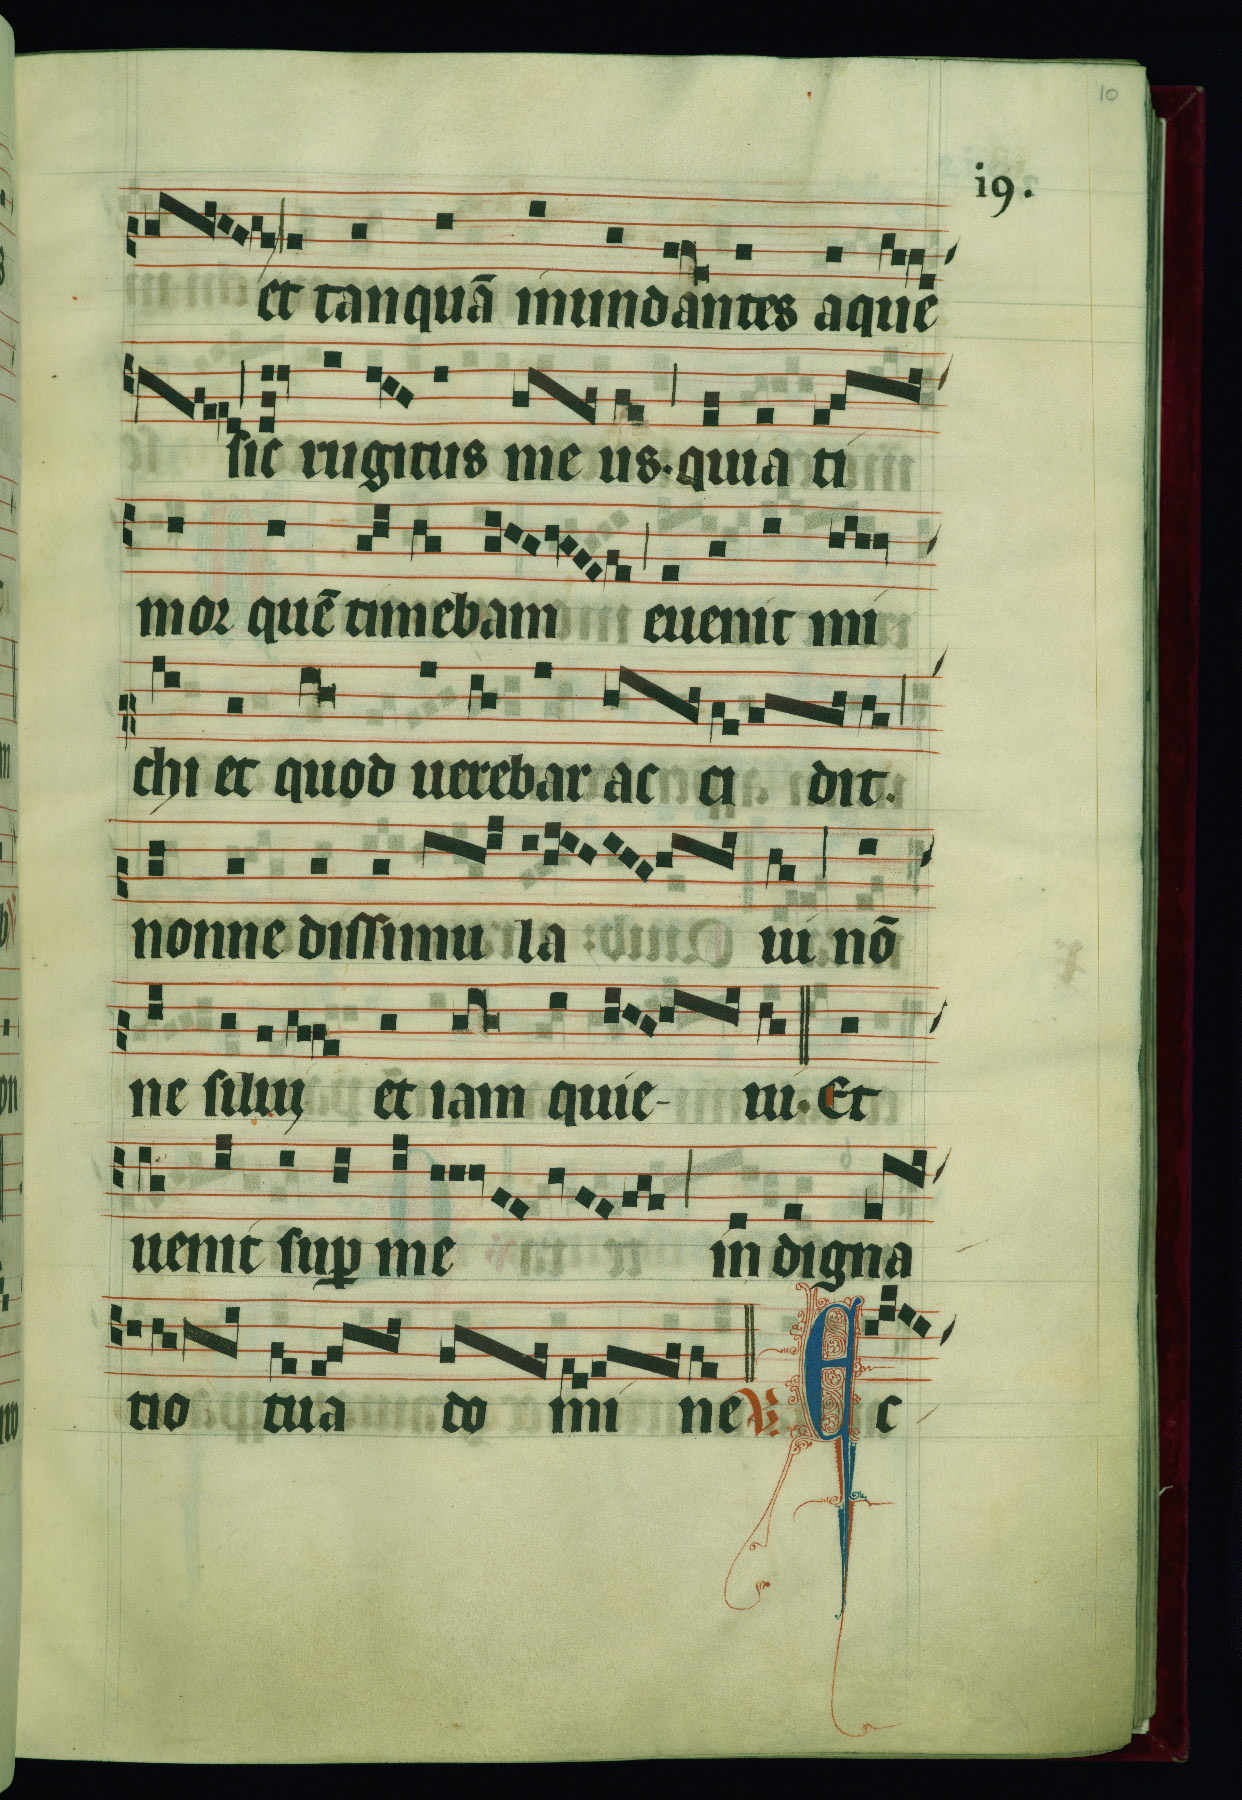 10
19.
et tanquā inundantes aque
sic rugitus me us. quia ti
mor quē timebam euenit mi
chi et quod uerebar ac ci dit.
nonne dissimu la ui nō
ne silui et iam quie- ui. Et
uenit sup me in digna
tio tua do mi ne ℟ Ec